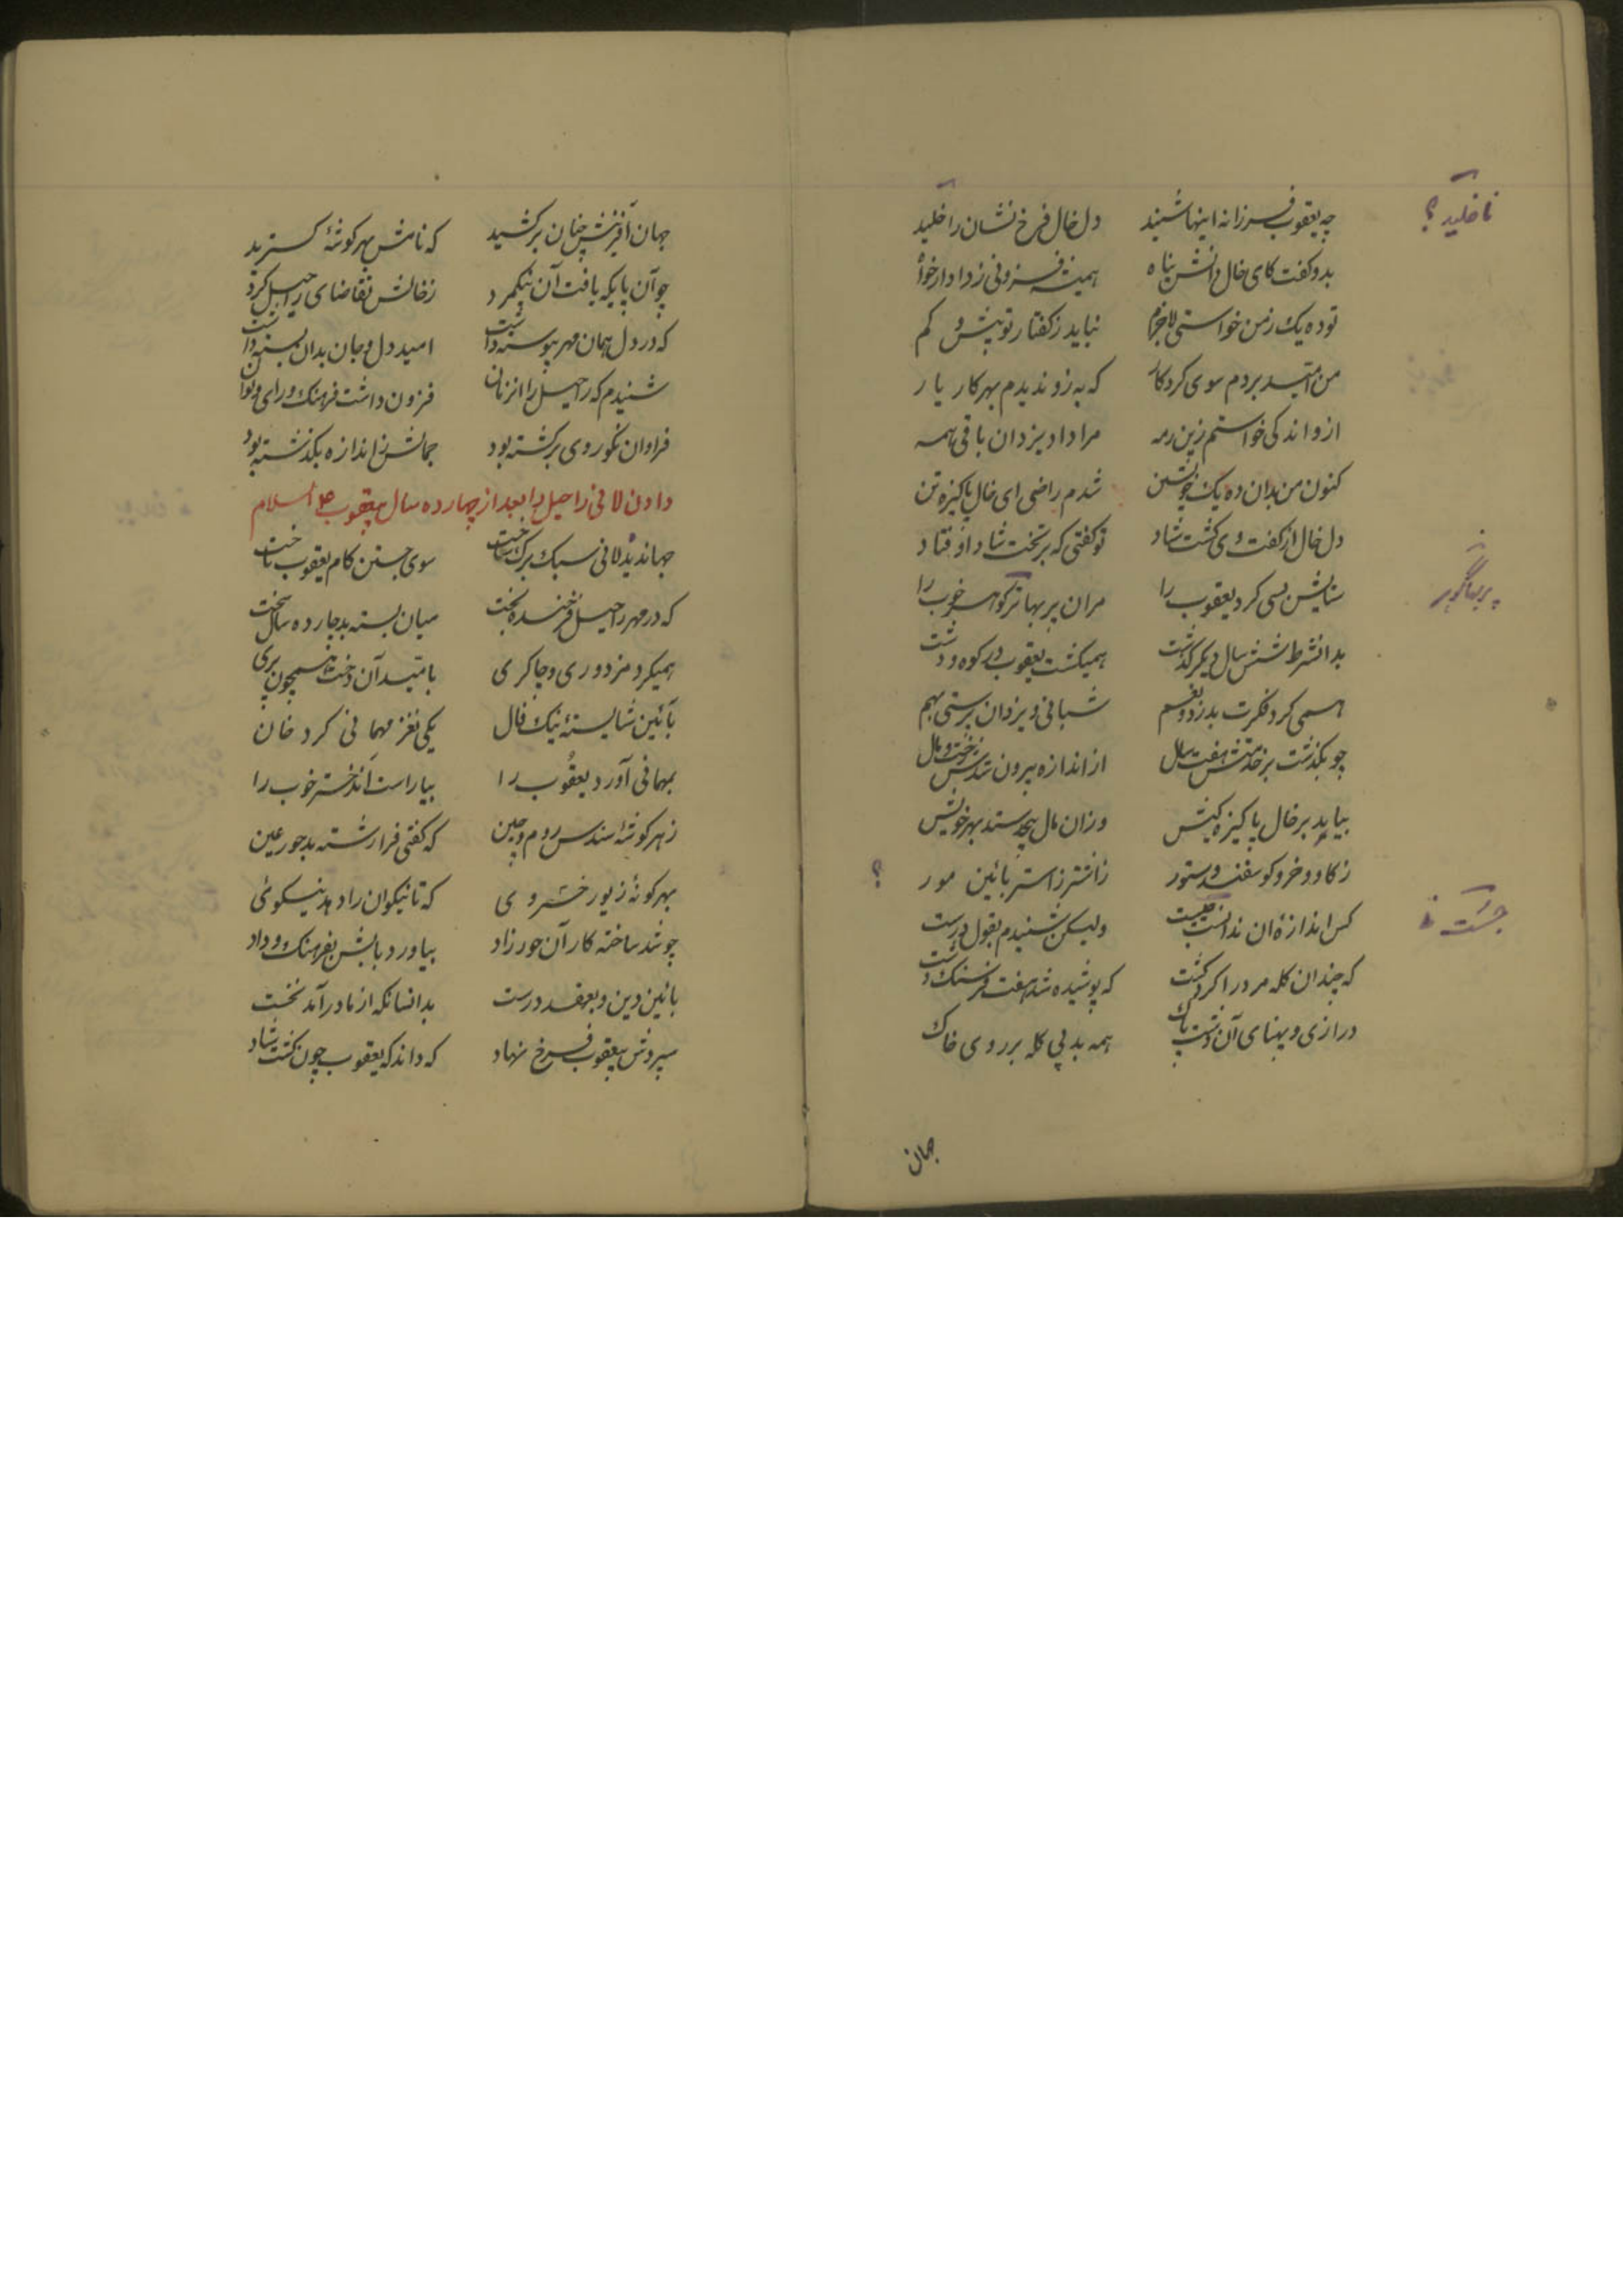 چه یعقوب فرزانه اینها شنید دل خال فرخ نشان را خلید
نا خلید؟
بدو گفت کای خال دانش پناه همیشه فزونی ز دادار خواه
تو ده یک ز من خواستی لاجرم نباید ز گفتار تو بیش و کم
من امید بردم سوی کردکار که به زو ندیدم بهر کار یار
ازو اندکی خواستم زین رمه مرا داد یزدان باقی همه
کنون من بدان ده یک خویشتن شدم راضی ای خال پاکیزه تن
دل خال از گفت وی گشت شاد تو گفتی که بر تخت شاد اوفتاد
ستایش بسی کرد یعقوب را مران پر بهاتر گواهر خوب را
پربهاگوهر
بدانشرط شش سال دیگر گذشت همیگشت یعقوب در کوه و دشت
همی کرد فکرت بدزد و بغنم شبانی و یزدان پرستی بهم
چو بگذشت بر خدمتش هفت سال از اندازه بیرون شدش رخت و مال
بیامد بر خال پاکیزه کیش وزان مال بیحد ستد بهر خویش
ز گاو و خر و گوسفند و ستور ز اشتر ز استر بائین مور
؟
کس اندازه آن ندانست چیست ولیکن شنیدم بقول درست
جست
که چندان گله مرد را گرد گشت که پوشیده شد هفت فرسنگ دشت
درازی و پهنای آن دشت پاک همه بد پی گله بر روی خاک
جهان
جهان آفرینش چنان برکشید که نامش بهر گوشهٔ گسترید
چو آن پایگه یافت آن نیکمرد ز خالش تقاضای راحیل کرد
که در دل همان مهر پیوسته داشت امید دل و جان بدان بسته داشت
شنیدم که راحیل را از زنان فزون داشت فرهنگ و رای
فراوان نکوروی برگشته بود جمالش ز اندازه بگذشته بود
دادن لانی راحیل را بعد از چهارده سال بیعقوب ع السلام
جهاندیده لانی سبک برگ ساخت سوی جستن کام یعقوب تاخت
که در مهر راحیل فرخنده بخت میان بسته بد چارده سال سخت
همیکرد مزدوری و چاکری بامید آن دخت همچون پری
بآئین شایستهٔ نیک فال یکی نغز مهمانی کرد خان
بمهمانی آورد یعقوب را بیاراست آندختر خوب را
ز هر گونهٔ سندس روم و چین که گفتی فرارشته بد حور عین
بهر گونه زیور خسروی که تا نیکوان را دهد نیکوئی
چو شد ساخته کار آن حورزاد بیاورد بابش بفرهنگ و داد
بائین دین و بعقد درست بدانسانکه از مادر آمد نخست
سپردش بیعقوب فرخ نهاد که داند که یعقوب چون گشت شاد